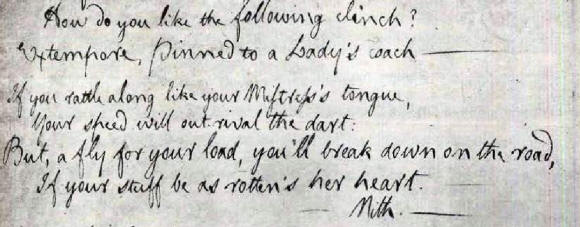 How do you like the following clinch?
Extempore, pinned to a Lady's coach —
If you rattle along like your Mistress's tongue,
Your speed will out-rival the dart:
But, a fly for your load, you'll break down on the road,
If your stuff be as rotten's her heart. —
— Nith. —